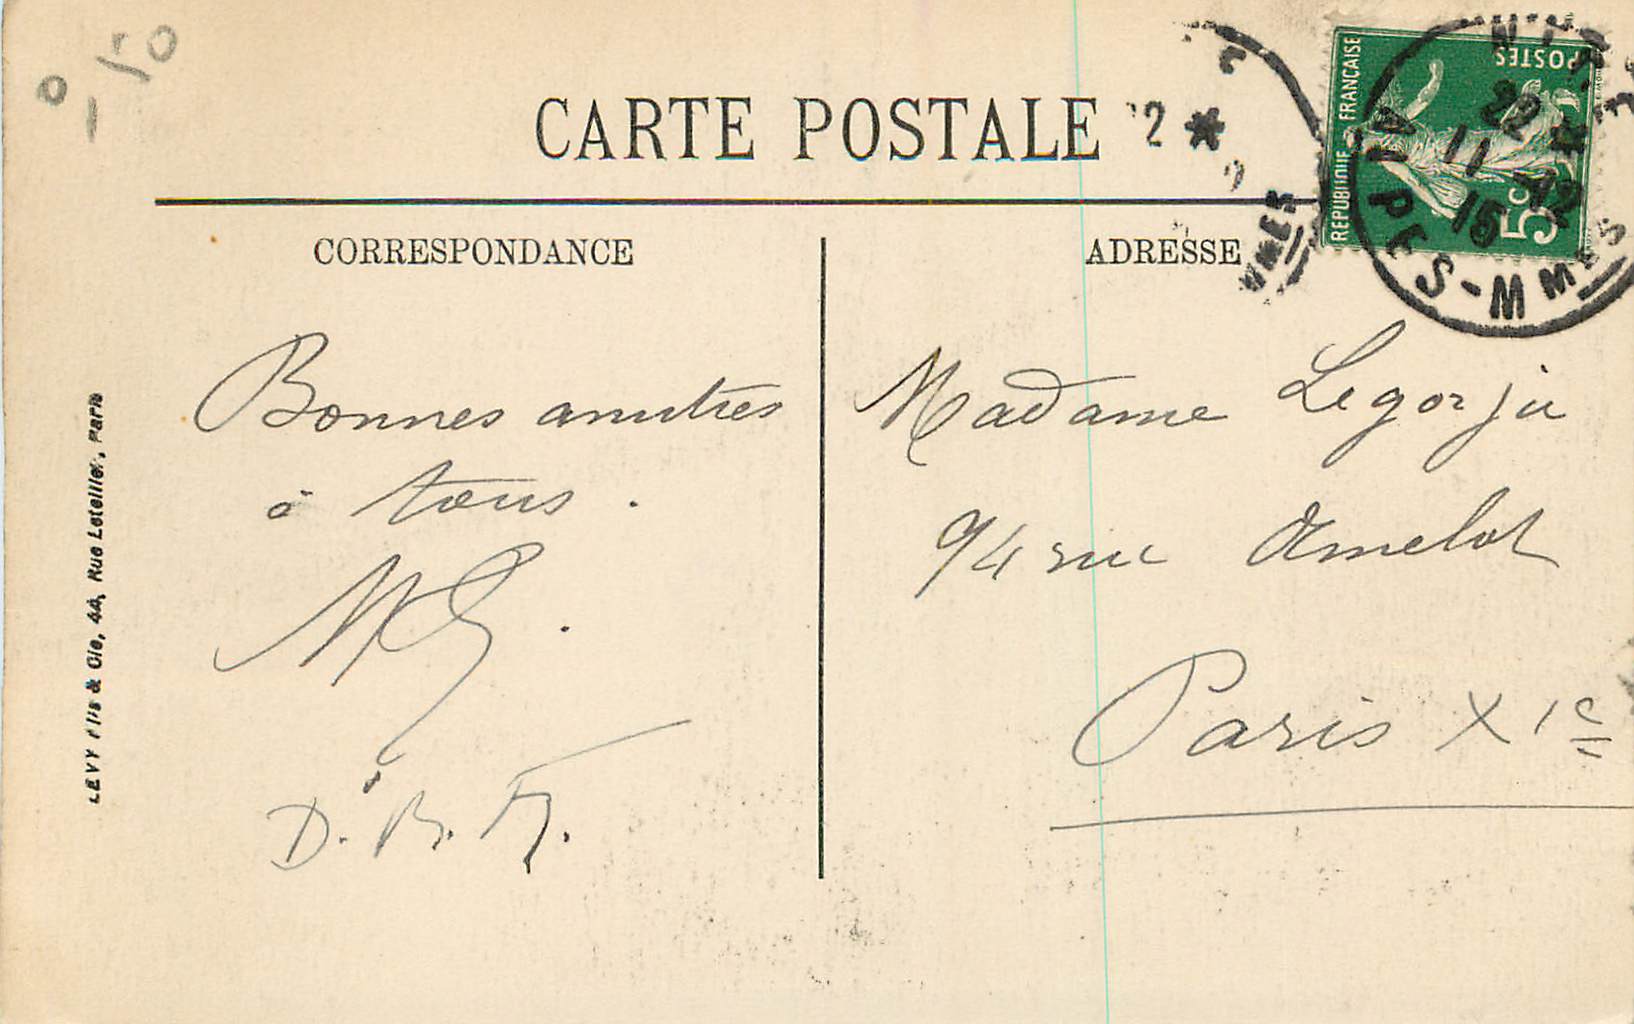 0-50
CARTE POSTALE
RÉPUBLIQUE FRANÇAISE
POSTES
5c
22
11 -12
15
ALPES-MMES
CORRESPONDANCE
ADRESSE
Bonnes amitiés
à tous.
D. B. F.
Madame Legorju
94 rue Amelot
Paris XIe
LEVY Fils & Cie, 44, Rue Letellier, Paris